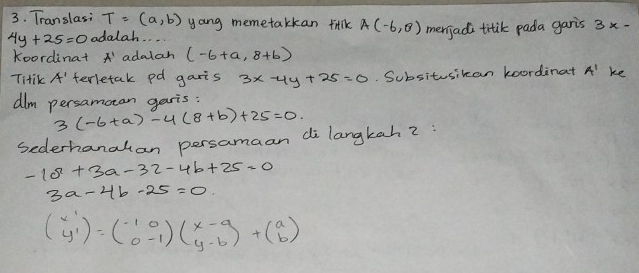 3. Translasi T = (a,b) yang memetakkan titik A (-6,8) menjadi titik pada garis 3x -
4y + 25 = 0 adalah....
Koordinat A' adalah (-6+a, 8+b)
Titik A' terletak pd garis 3x -4y + 25 = 0. Subsitusikan koordinat A' ke
dlm persamaan garis :
3 (-6+a) - 4 (8+b) + 25 = 0.
Sederhanakan persamaan di langkah 2 :
-18 + 3a - 32 - 4b + 25 = 0
3a - 4b - 25 = 0.
(x' y') = (-1 0 0 -1) (x-a y-b) + (a b)